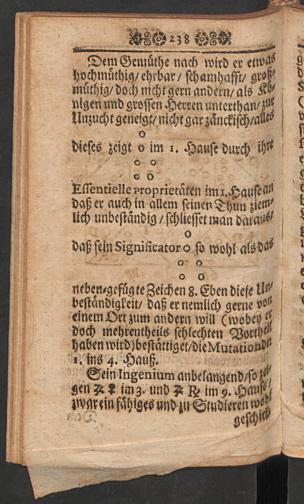 238
Dem Gemüthe nach wird er etwas
hochmüthig/ ehrbar/ schamhafft/ groß-
müthig/ doch nicht gern andern/ als Kö-
nigen und grossen Herren unterthan/ zur
Unzucht geneigt/ nicht gar zänckisch/ alles
dieses zeigt o im 1. Hause durch ihre
Essentielle Proprietäten im 1. Hause an
daß er auch in allem seinen Thun ziem-
lich unbeständig/ schliesset man daraus/
daß sein Significator o so wohl als das
neben-gefügte Zeichen 8. Eben diese Un-
beständigkeit/ daß er nemlich gerne von
einem Ort zum andern will (wobey er
doch mehrentheils schlechten Vortheil
haben wird) bestättiget/ die Mutation der
1. ins 4. Hauß.
Sein Ingenium anbelangend/ so zei-
gen ♃ ☿ im 3. und ♃ im 9. Hause/
zwar ein fähiges und zu Studieren wohl
geschick-